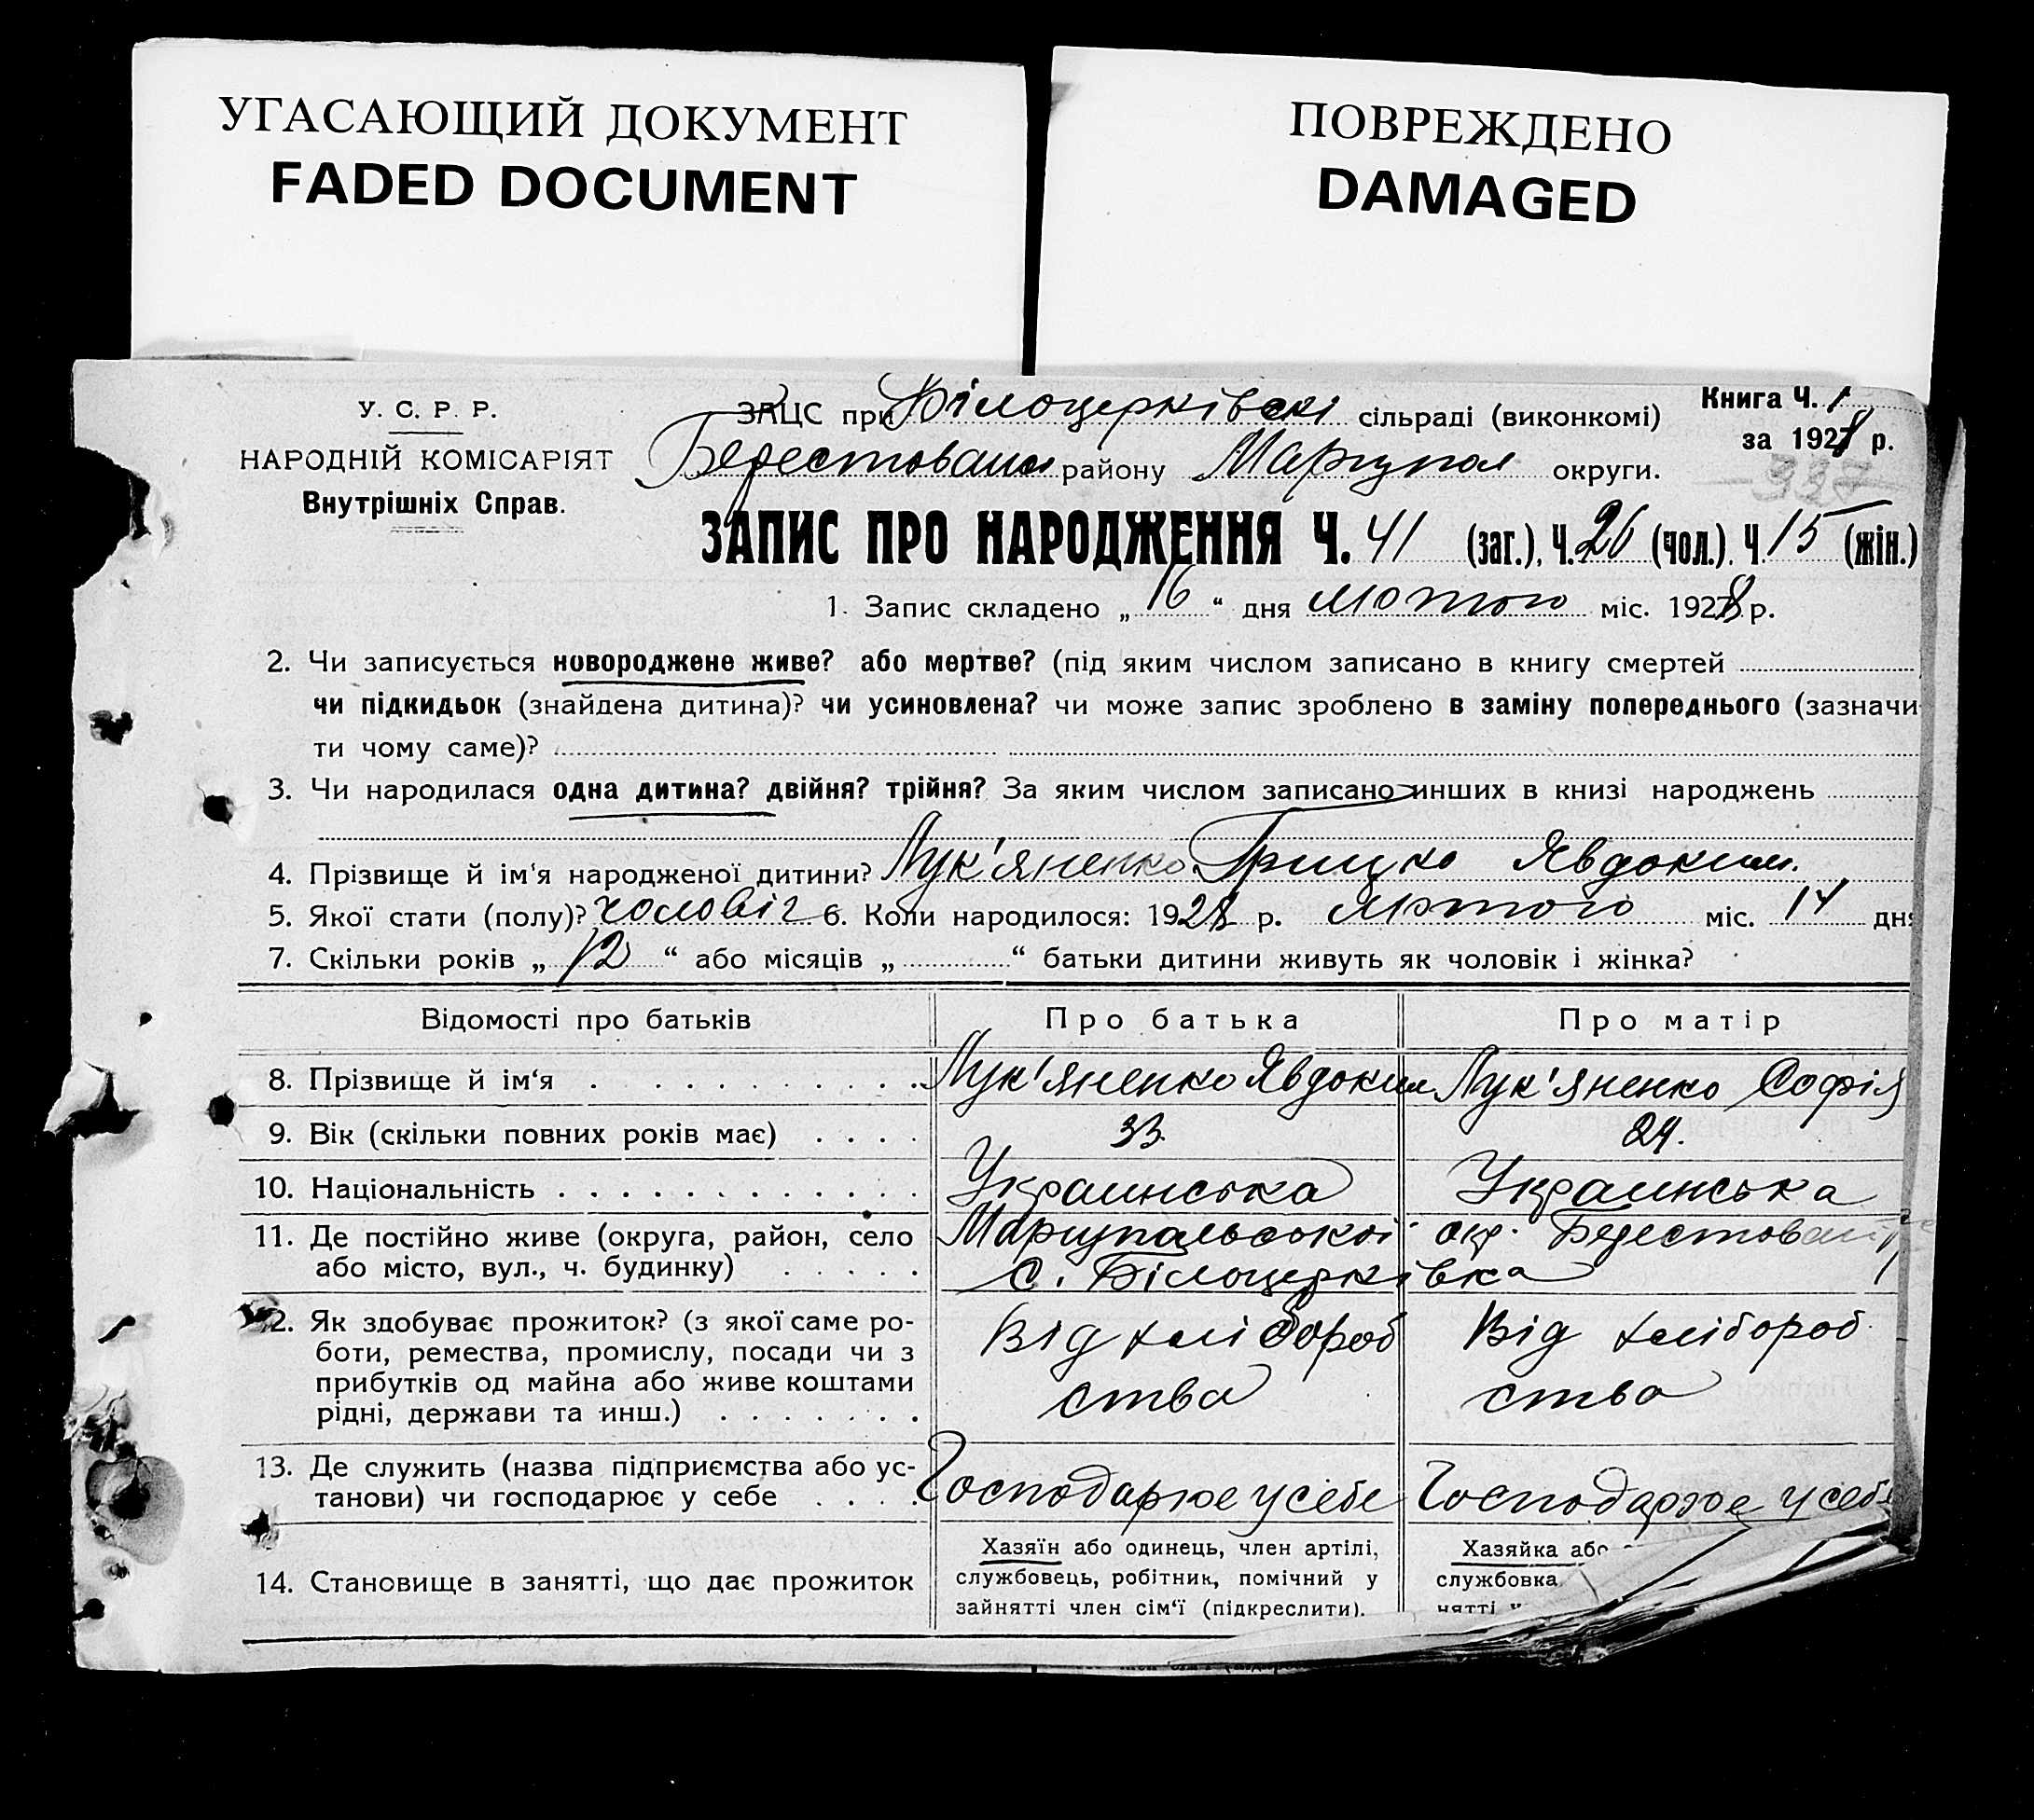 УГАСАЮЩИЙ ДОКУМЕНТ
FADED DOCUMENT
ПОВРЕЖДЕНО
DAMAGED
У. С. Р. Р.
НАРОДНІЙ КОМІСАРІЯТ
Внутрішніх Справ.
ЗАЦС при Білоцерківскі сільраді (виконкомі)
Книга Ч. 1
за 1928 р.
Берестован району Маріупол округи.
337
ЗАПИС ПРО НАРОДЖЕННЯ Ч. 41 (заг.), Ч. 26 (чол.), Ч. 15 (жін.)
1. Запис складено „16“ дня лютого міс. 1928 р.
2. Чи записується новороджене живе? або мертве? (під яким числом записано в книгу смертей
чи підкидьок (знайдена дитина)? чи усиновлена? чи може запис зроблено в заміну попереднього (зазначи-
ти чому саме)?
3. Чи народилася одна дитина? двійня? трійня? За яким числом записано инших в книзі народжень
4. Прізвище й ім‘я народженої дитини? Лук'яненко Грицко Явдоким.
5. Якої стати (полу)? чоловіч 6. Коли народилося: 1928 р. Лютого міс. 14 дня
7. Скільки років „12“ або місяців „ “ батьки дитини живуть як чоловік і жінка?
Відомості про батьків Про батька Про матір
8. Прізвище й ім‘я Лук'яненко Явдоким Лук'яненко Софія
9. Вік (скільки повних років має) 33. 24.
10. Національність Украинська Украинська
11. Де постійно живе (округа, район, село
або місто, вул., ч. будинку)
Маріупальської окр. Берестован
с. Білоцерківка
12. Як здобуває прожиток? (з якої саме ро-
боти, ремества, промислу, посади чи з
прибутків од майна або живе коштами
рідні, держави та инш.)
Від хлібороб
ства
Від хлібороб
ства
13. Де служить (назва підприємства або ус-
танови) чи господарює у себе
Господарює у себе Господарює у себе
14. Становище в занятті, що дає прожиток
Хазяїн або одинець, член артілі,
службовець, робітник, помічний у
зайнятті член сім‘ї (підкреслити).
Хазяйка або
службовка